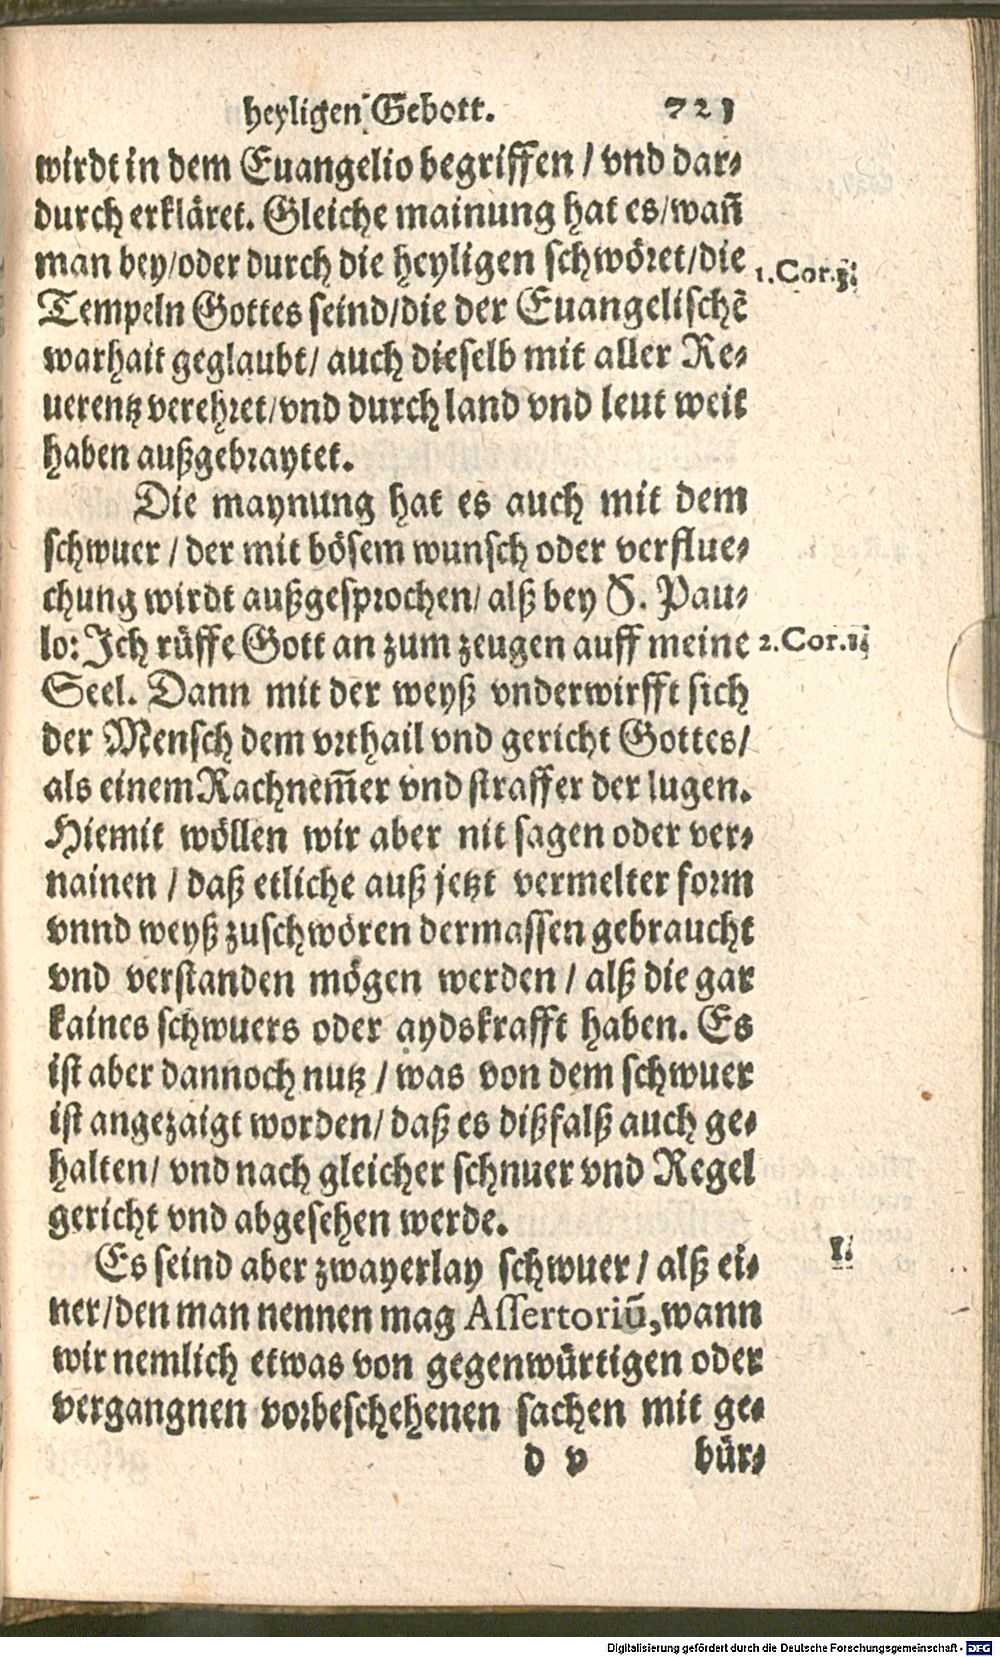 heyligen Gebott. 721
wirdt in dem Euangelio begriffen / vnd dar⸗
durch erkläret. Gleiche mainung hat es/wañ
man bey/oder durch die heyligen schwöret/die
1.Cor.3.
Tempeln Gottes seind/die der Euangelischẽ
warhait geglaubt/ auch dieselb mit aller Re⸗
uerentz verehret/vnd durch land vnd leut weit
haben außgebraytet.
Die maynung hat es auch mit dem
schwuer / der mit bösem wunsch oder verflue⸗
chung wirdt außgesprochen/ alß bey S. Pau⸗
lo: Ich rüffe Gott an zum zeugen auff meine
2.Cor.1.
Seel. Dann mit der weyß vnderwirfft sich
der Mensch dem vrthail vnd gericht Gottes/
als einem Rachnem̃er vnd straffer der lugen.
Hiemit wöllen wir aber nit sagen oder ver⸗
nainen / daß etliche auß jetzt vermelter form
vnnd weyß zuschwören dermassen gebraucht
vnd verstanden mögen werden / alß die gar
kaines schwuers oder aydskrafft haben. Es
ist aber dannoch nutz / was von dem schwuer
ist angezaigt worden/ daß es dißfalß auch ge⸗
halten/ vnd nach gleicher schnuer vnd Regel
gericht vnd abgesehen werde.
Es seind aber zwayerlay schwuer / alß ei⸗
ner/den man nennen mag Assertoriũ, wann
wir nemlich etwas von gegenwürtigen oder
vergangnen vorbeschehenen sachen mit ge⸗
d v bür⸗
Digitalisierung gefördert durch die Deutsche Forschungsgemeinschaft - DFG